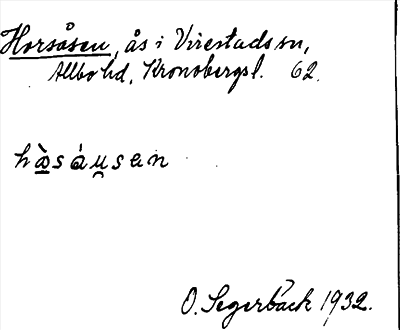 Horsåsen, ås i Virestads sn,
Allbo hd, Kronobergs l. 62.
hòsáu̯sen
O. Segerbäck 1932.